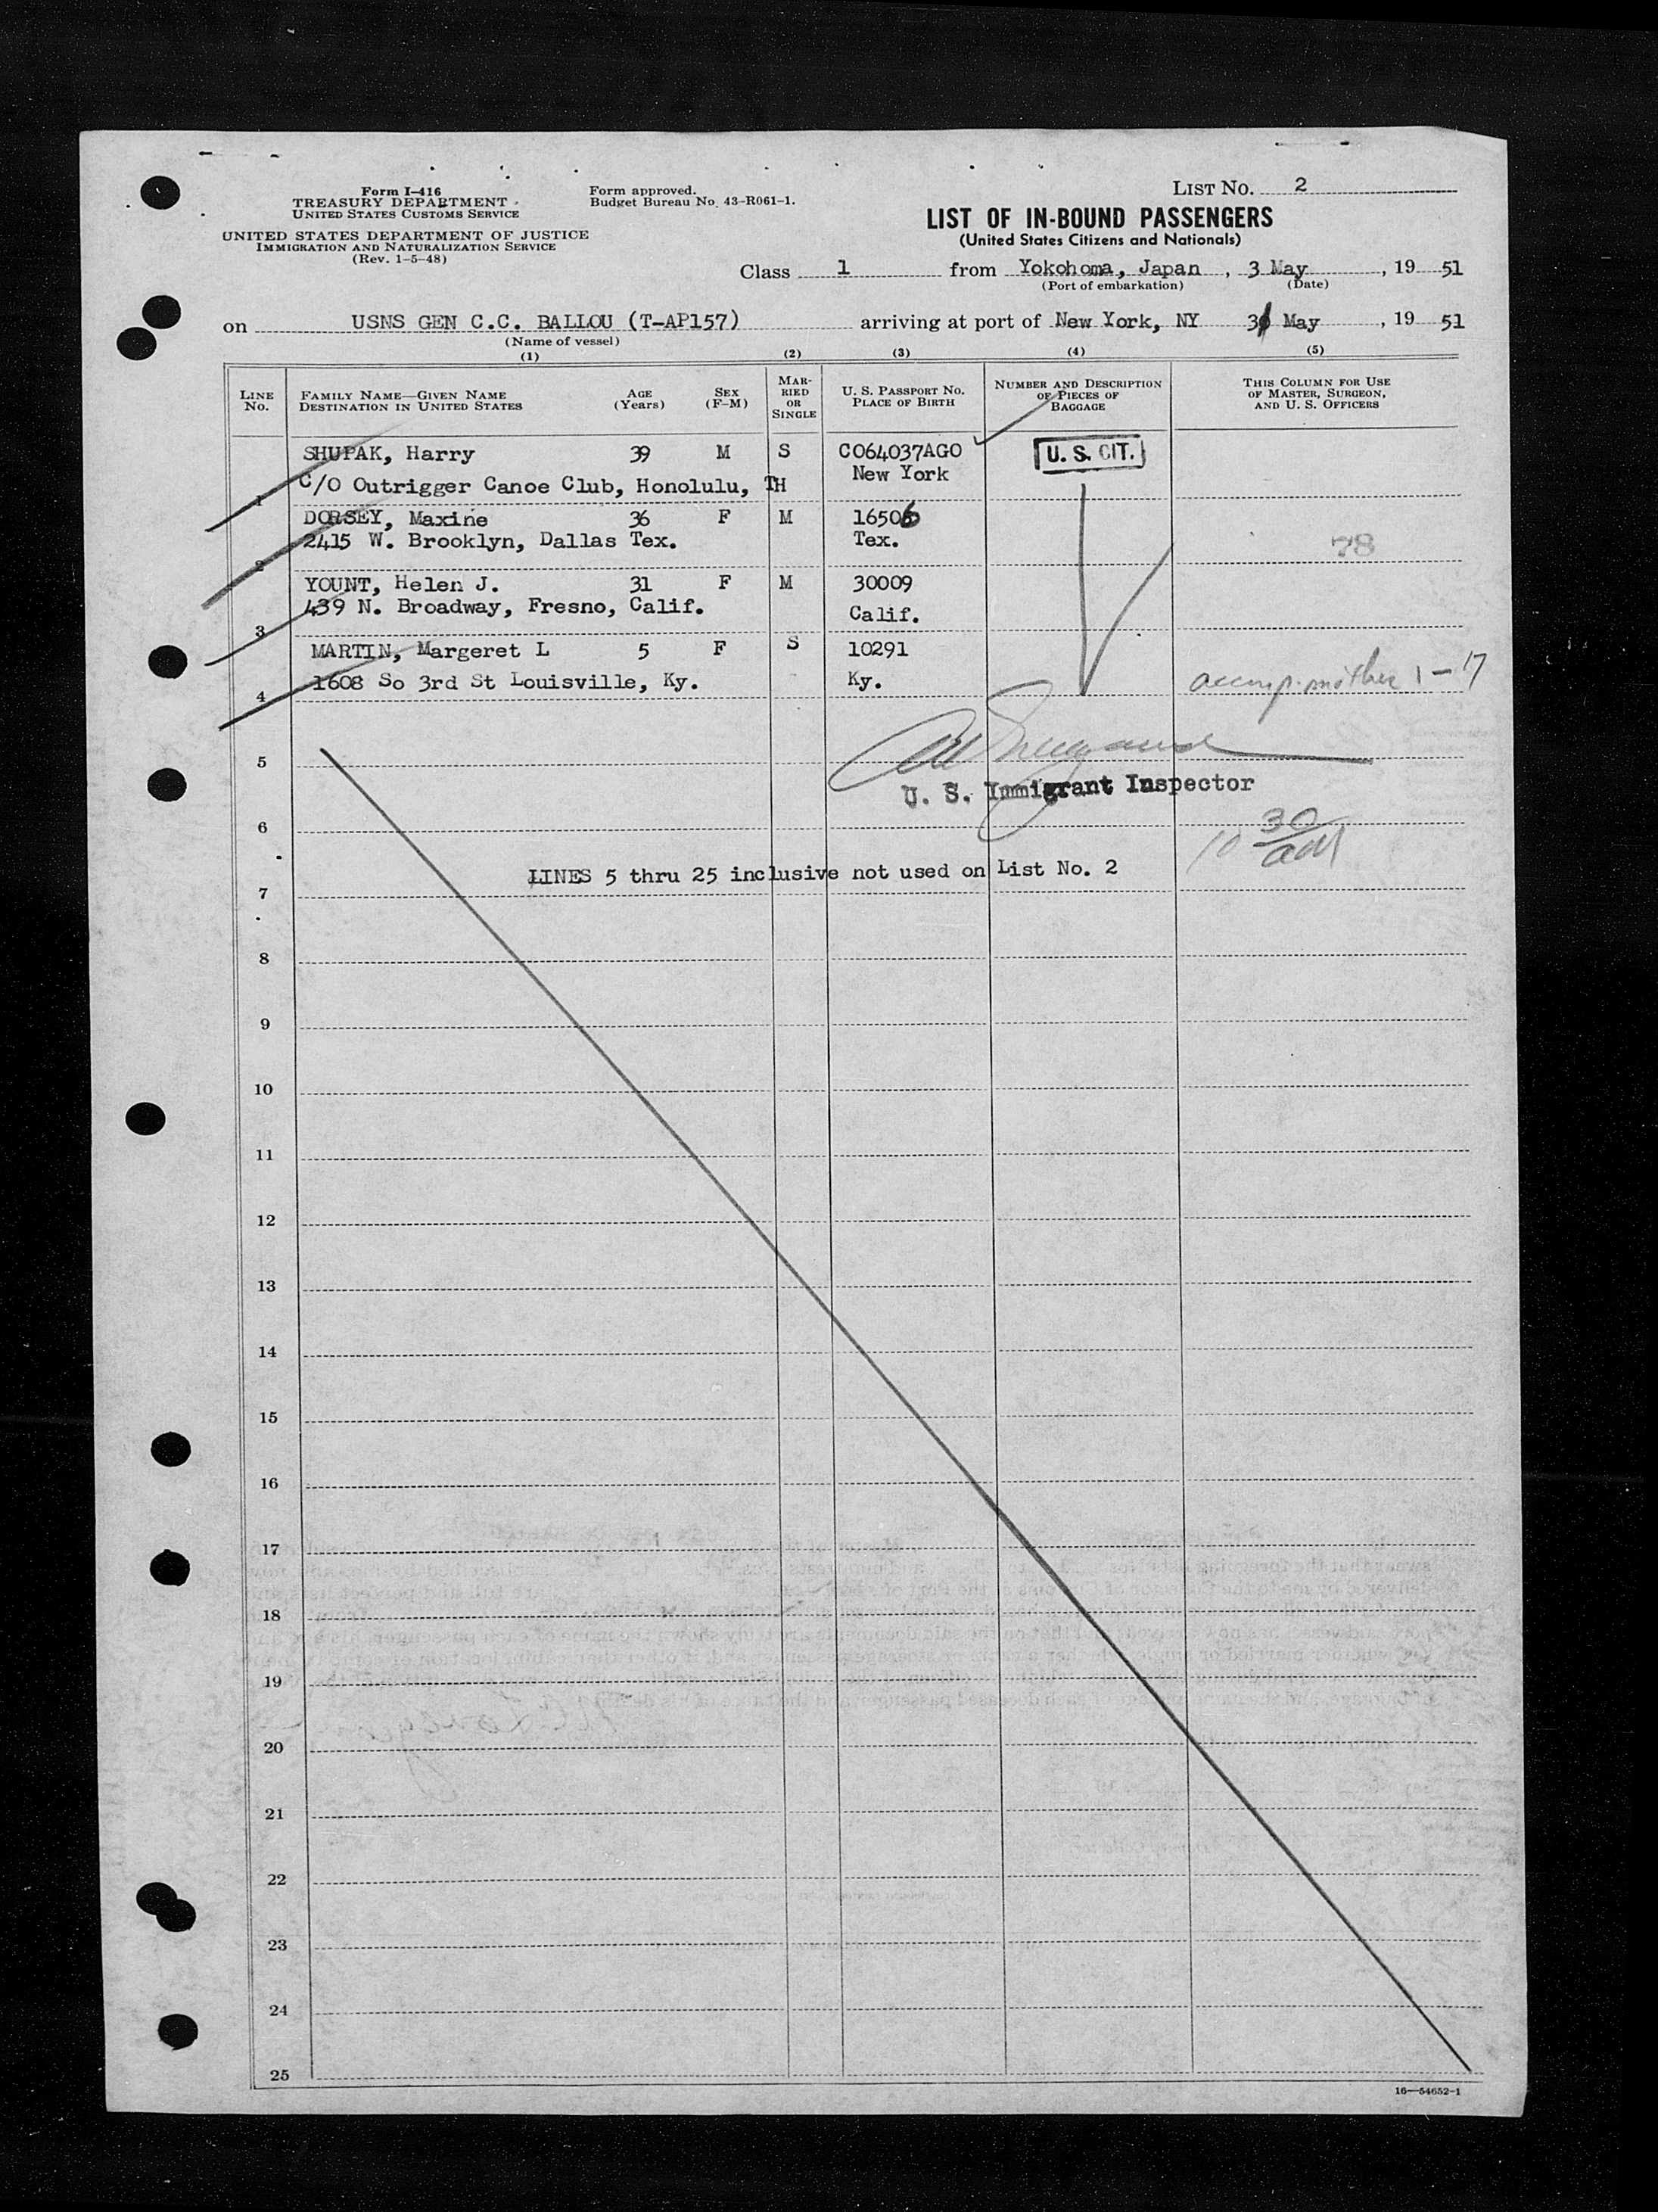 Form I-416
TREASURY DEPARTMENT
UNITED STATES CUSTOMS SERVICE
UNITED STATES DEPARTMENT OF JUSTICE
IMMIGRATION AND NATURALIZATION SERVICE
(Rev. 1-5-48)
Form approved.
Budget Bureau No. 43-R061-1.
LIST NO. 2
LIST OF IN-BOUND PASSENGERS
(United States Citizens and Nationals)
Class 1 from Yokohoma, Japan, 3 May, 19 51
(Port of embarkation) (Date)
on USNS GEN C.C. BALLOU (T-AP157) arriving at port of New York, NY 31 May, 19 51
(Name of vessel)
(1) (2) (3) (4) (5)
LINE No. FAMILY NAME—GIVEN NAME DESTINATION IN UNITED STATES AGE (Years) SEX (F-M) MARRIED OR SINGLE U. S. PASSPORT NO. PLACE OF BIRTH NUMBER AND DESCRIPTION OF PIECES OF BAGGAGE THIS COLUMN FOR USE OF MASTER, SURGEON, AND U. S. OFFICERS
SHUPAK, Harry 39 M S C064037AGO U. S. CIT.
New York
1 C/O Outrigger Canoe Club, Honolulu, TH
DORSEY, Maxine 36 F M 16506
2415 W. Brooklyn, Dallas Tex. Tex. 78
2
YOUNT, Helen J. 31 F M 30009
439 N. Broadway, Fresno, Calif. Calif.
3
MARTIN, Margeret L 5 F S 10291
4 1608 So 3rd St Louisville, Ky. Ky. accomp. mother 1-17
5
U. S. Immigrant Inspector
6
10 30/AM
LINES 5 thru 25 inclusive not used on List No. 2
7
8
9
10
11
12
13
14
15
16
17
18
19
20
21
22
23
24
25
16—54652-1